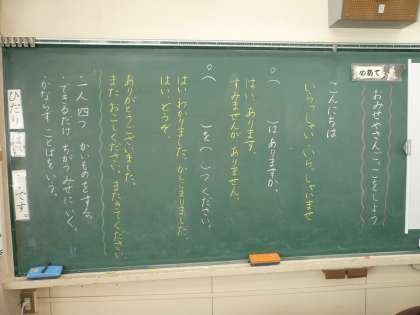 めあて
おみせやさんごっこをしよう
こんにちは
いらっしゃいいらっしゃいませ
○( )はありますか。
はい あります。
すみませんが ありません。
○( )を( )つください。
はい わかりました。かしこまりました。
はい どうぞ。
ありがとうございました。
また おこしください。またきてください。
・一人 四つ かいものをする。
・できるだけ ちがうみせにいく。
・かならず ことばをいう。
ひだり
です。